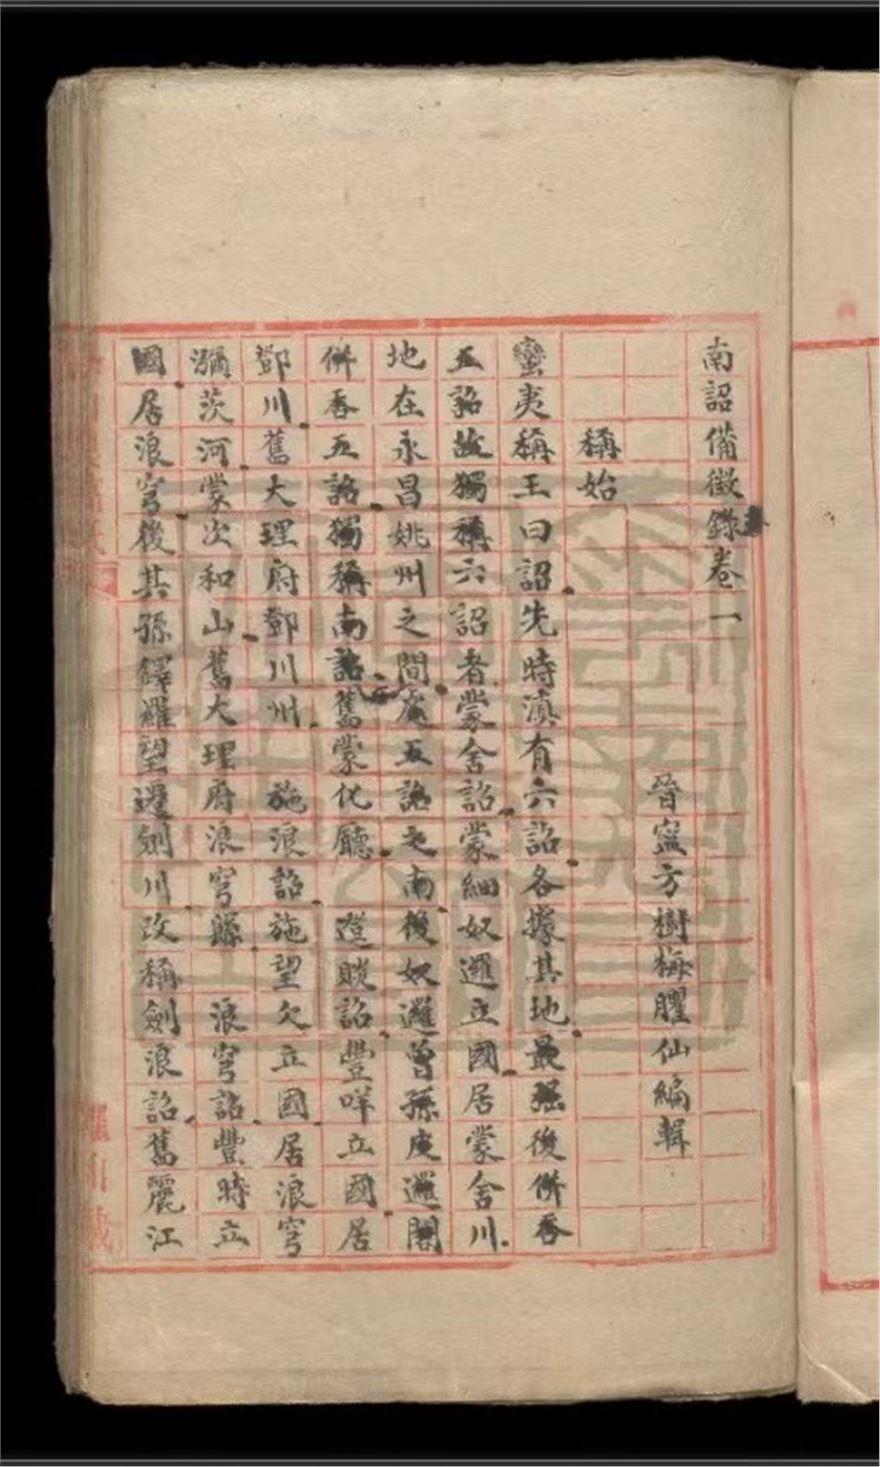 南詔備徵錄卷一
晉寧方樹梅臞仙編輯
稱始
蠻夷稱王曰詔先時滇有六詔各據其地最强後併吞
五詔故獨稱六詔者蒙舍詔蒙細奴邏立國居蒙舍川
地在永昌姚州之間處五詔之南後奴邏曾孫皮邏閣
併吞五詔獨稱南詔舊蒙化廳 邆賧詔豐咩立國居
鄧川舊大理府鄧川州 施浪詔施望欠立國居浪穹
瀰茨河蒙次和山舊大理府浪穹縣 浪穹詔豐時立
國居浪穹後其孫鐸羅望遷劍川改稱劍浪詔舊麗江